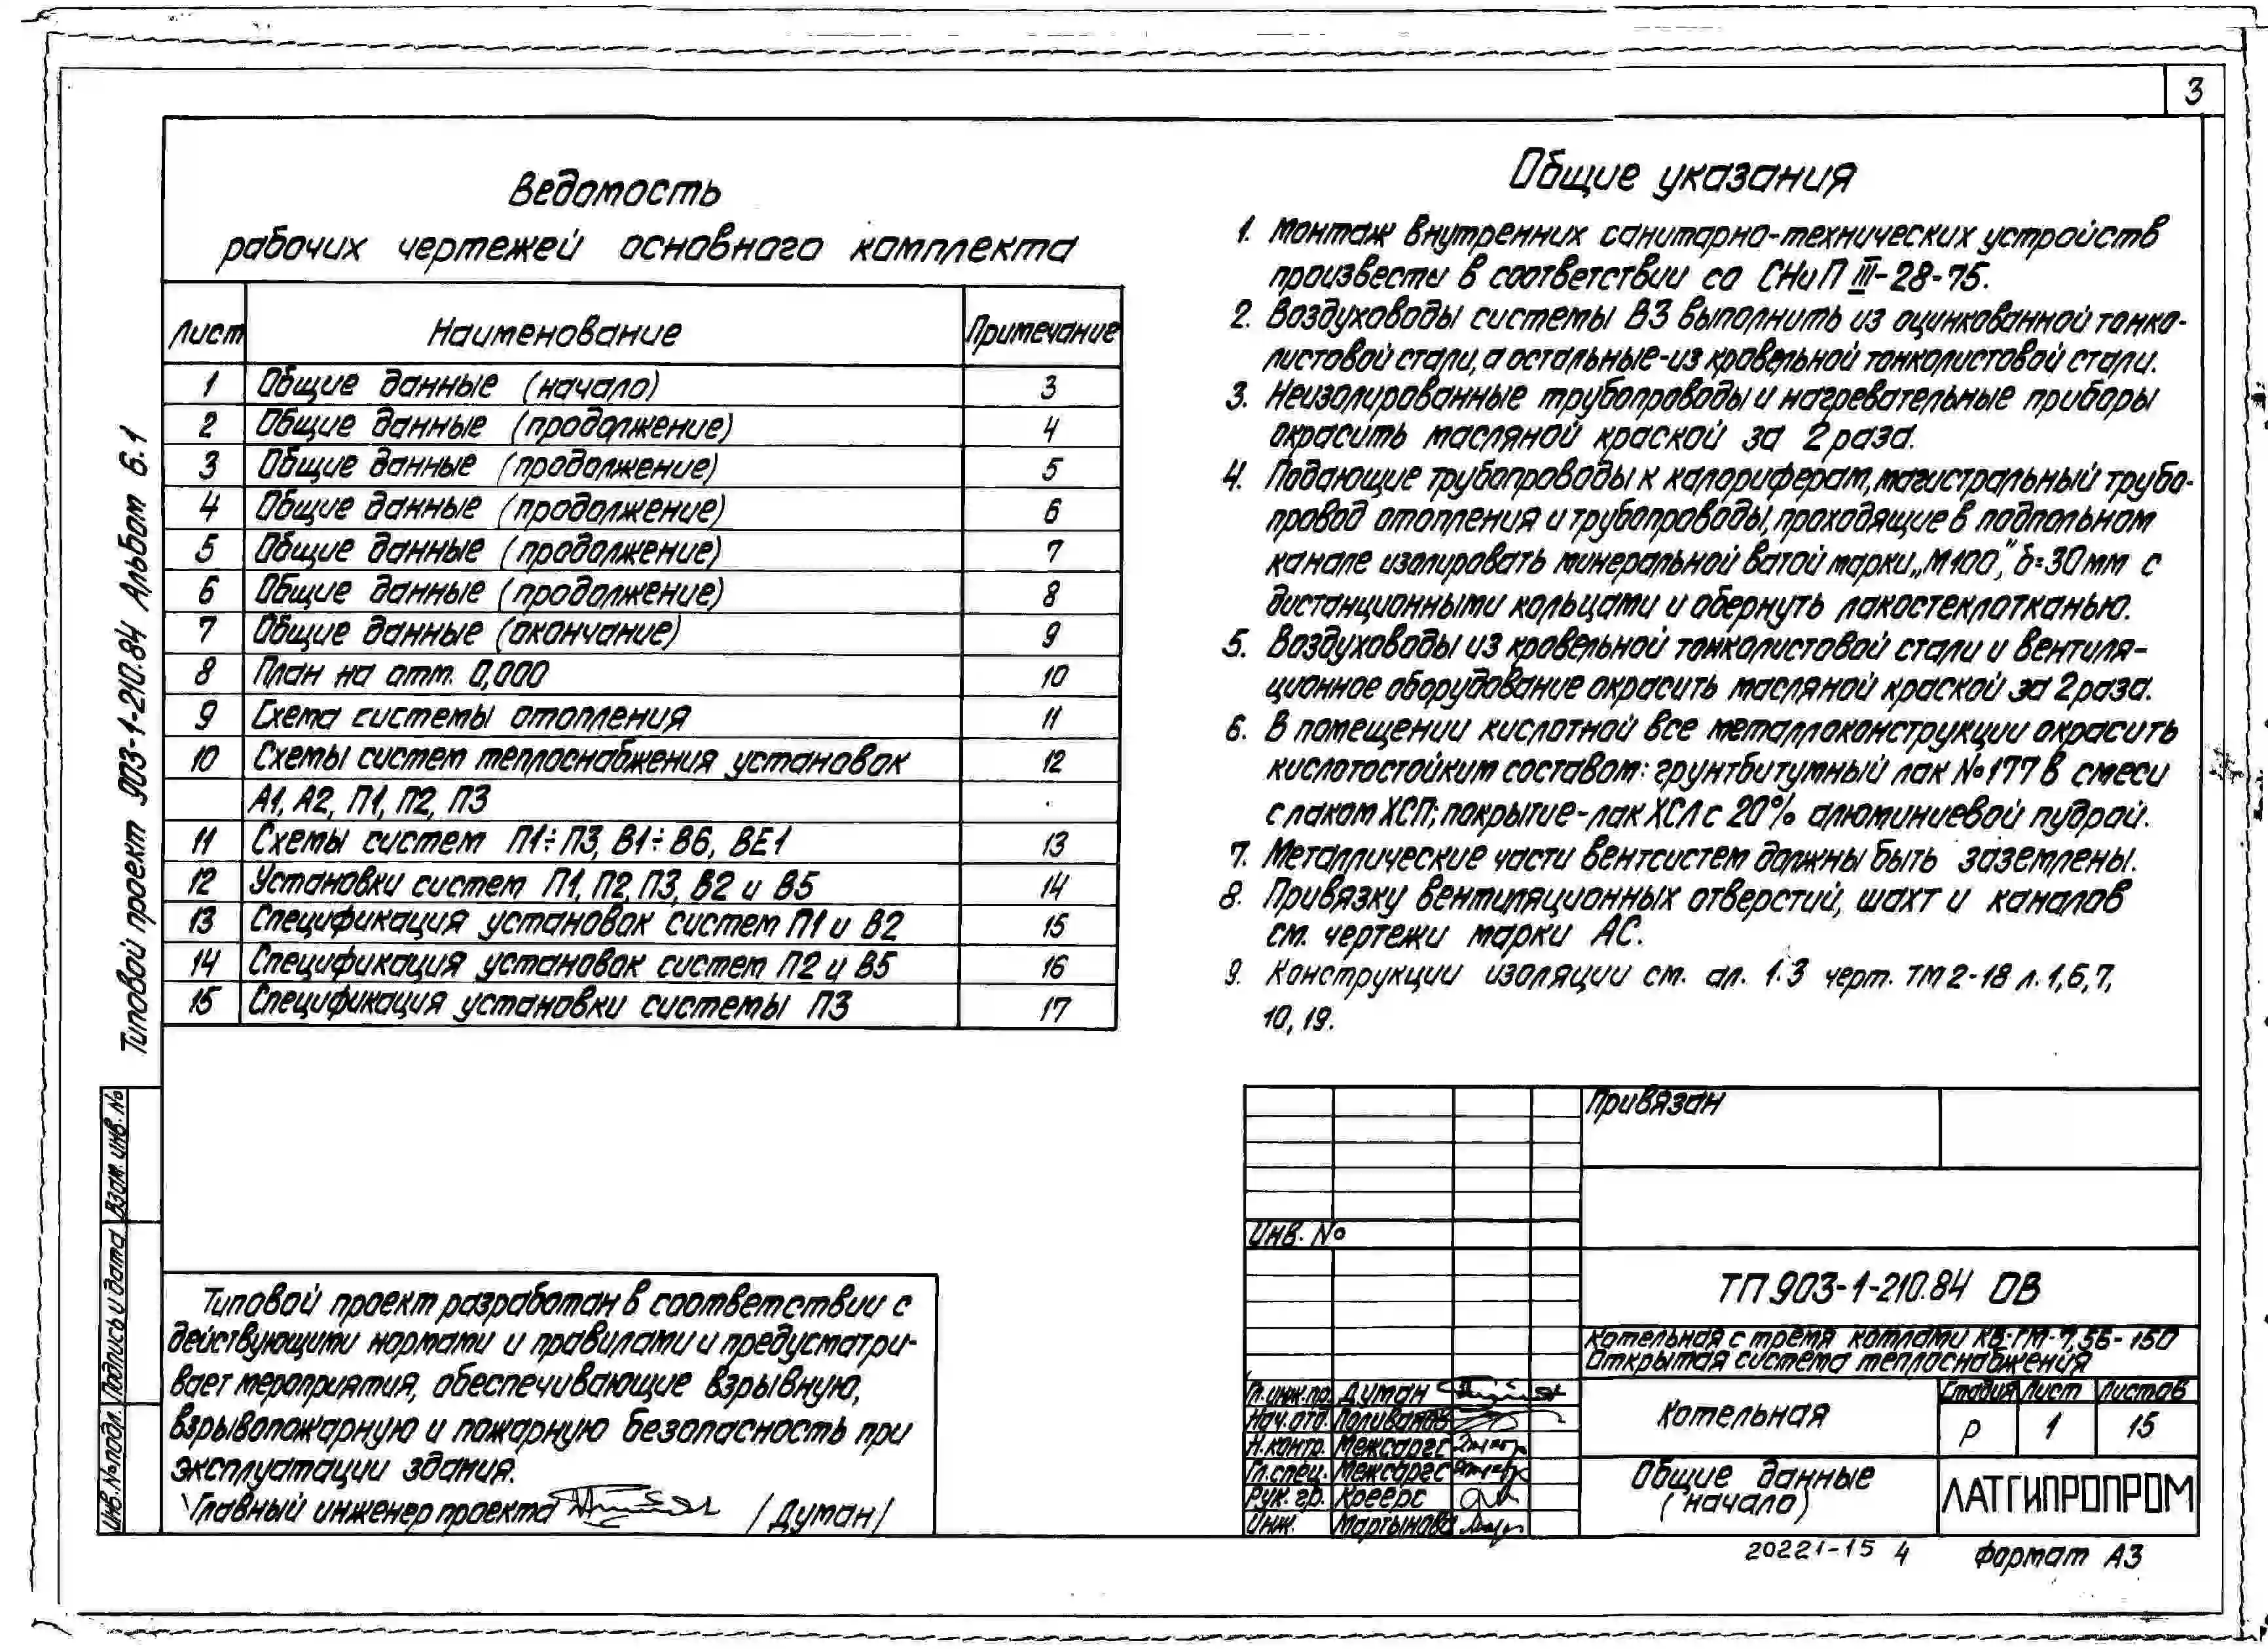 3
Ведомость
рабочих чертежей основного комплекта
Лист Наименование Примечание
1 Общие данные (начало) 3
2 Общие данные (продолжение) 4
3 Общие данные (продолжение) 5
4 Общие данные (продолжение) 6
5 Общие данные (продолжение) 7
6 Общие данные (продолжение) 8
7 Общие данные (окончание) 9
8 План на отм. 0,000 10
9 Схема системы отопления 11
10 Схемы систем теплоснабжения установок 12
А1, А2, П1, П2, П3
11 Схемы систем П1÷П3, В1÷В6, ВЕ1 13
12 Установки систем П1, П2, П3, В2 и В5 14
13 Спецификация установок систем П1 и В2 15
14 Спецификация установок систем П2 и В5 16
15 Спецификация установки системы П3 17
Общие указания
1. Монтаж внутренних санитарно-технических устройств
произвести в соответствии со СНиП III-28-75.
2. Воздуховоды системы В3 выполнить из оцинкованной тонко-
листовой стали, а остальные-из кровельной тонколистовой стали.
3. Неизолированные трубопроводы и нагревательные приборы
окрасить масляной краской за 2 раза.
4. Подающие трубопроводы к калориферам, магистральный трубо-
провод отопления и трубопроводы, проходящие в подпольном
канале изолировать минеральной ватой марки „М100", δ=30мм с
дистанционными кольцами и обернуть лакостеклотканью.
5. Воздуховоды из кровельной тонколистовой стали и вентиля-
ционное оборудование окрасить масляной краской за 2 раза.
6. В помещении кислотной все металлоконструкции окрасить
кислотостойким составом: грунтбитумный лак №177 в смеси
с лаком ХСП; покрытие-лак ХСЛ с 20% алюминиевой пудрой.
7. Металлические части вентсистем должны быть заземлены.
8. Привязку вентиляционных отверстий, шахт и каналов
см. чертежи марки АС.
9. Конструкции изоляции см. ал. 1.3 черт. ТМ2-18 л.1,6,7,
10, 19.
Типовой проект 903-1-210.84 Альбом 6.1
Инв.№подл. Подпись и дата Взам. инв. №
Типовой проект разработан в соответствии с
действующими нормами и правилами и предусматри-
вает мероприятия, обеспечивающие взрывную,
взрывопожарную и пожарную безопасность при
эксплуатации здания.
Главный инженер проекта /Думан/
Привязан
Инв. №
ТП 903-1-210.84 ОВ
Котельная с тремя котлами КВ-ГМ-7,56-150
Открытая система теплоснабжения
Гл.инж.пр. Думан
Нач.отд. Поливанов
Н.контр. Межсаргс
Гл.спец. Межсаргс
Рук. гр. Креерс
Инж. Мартынова
Котельная
Стадия Лист Листов
Р 1 15
Общие данные
(начало)
ЛАТГИПРОПРОМ
20221-15 4
Формат А3